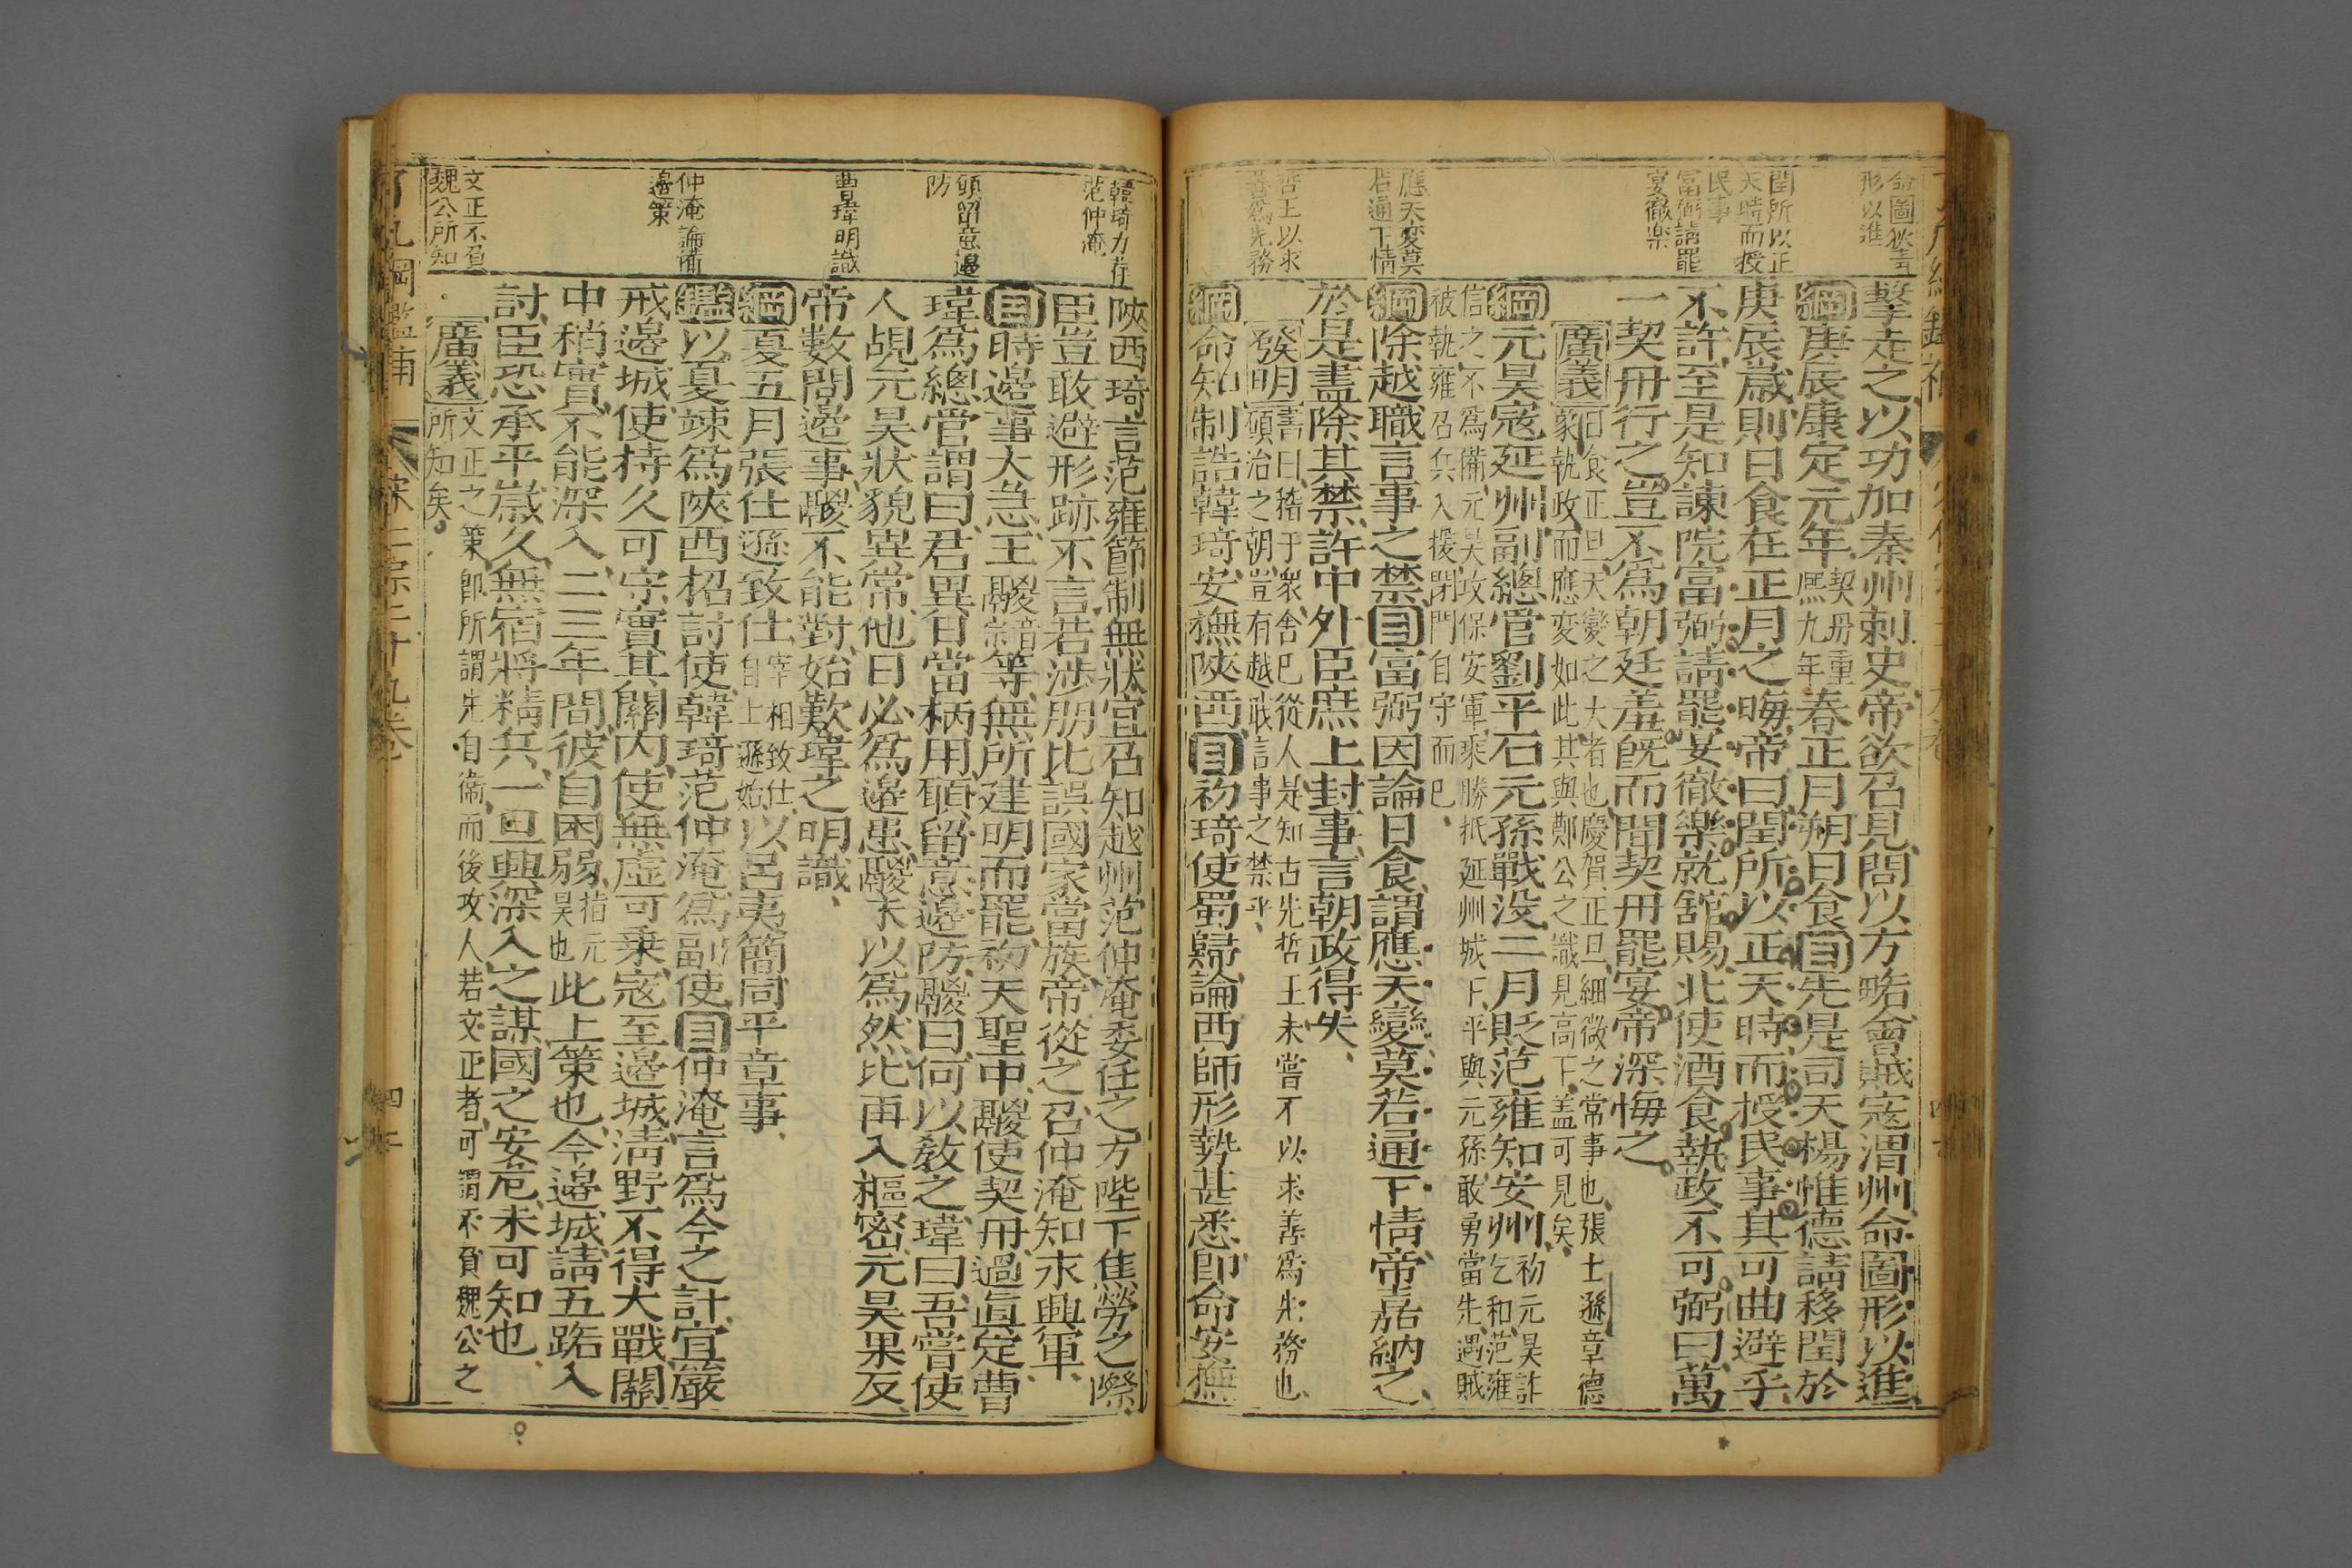 命圖狄青
形以進
閏所以正
天時而授
民事
富弼請罷
宴徹樂
應天変莫
若通下情
哲王以求
善爲先務
擊走之以功加秦州刺史帝欲召見問以方略會賊寇渭州命圖形以進
綱庚辰康定元年契丹重熈九年春正月朔日食目先是司天楊惟德請移閏於
庚辰歲則日食在正月之晦帝曰閏所以正天時而授民事其可曲避乎
不許至是知諫院富弼請罷宴徹樂就舘賜北使酒食執政不可弼曰萬
一契丹行之豈不爲朝廷羞旣而聞契丹罷宴帝深悔之
廣義日食正旦天變之大者也慶賀正旦細微之常事也張士遜章德
象執政而應変如此其與鄭公之識見高下盖可見矣
綱元昊寇延州副總管劉平石元孫戰没二月貶范雍知安州初元昊詐乞和范雍
信之不爲備元昊攻保安軍乘勝抵延州城下平與元孫敢勇當先遇賊
被執雍召兵入援閉門自守而已
綱除越職言事之禁目富弼因論日食謂應天變莫若通下情帝嘉納之
於是盡除其禁許中外臣庶上封事言朝政得失
發明書曰稽于衆舍已從人是知古先哲王未嘗不以求善爲先務也
頋治之朝豈有越職言事之禁乎
綱命知制誥韓琦安撫陝西目初琦使蜀歸論西師形勢甚悉即命安撫
韓琦力荐
范仲淹
頋留意邉
防
曹瑋明識
仲淹論備
邉策
文正不負
魏公所知
陝西琦言范雍節制無狀宜召知越州范仲淹委任之方陛下焦勞之際
臣豈敢避形跡不言若涉朋比誤國家當族帝從之召仲淹知永興軍
目時邉事大急王鬷音宗等無所建明而罷初天聖中鬷使契丹過眞定曹
瑋爲總管謂曰君異日當柄用頋留意邉防鬷曰何以敎之瑋曰吾嘗使
人覘元昊狀貌異常他日必爲邉患鬷未以爲然比再入樞密元昊果反
帝數問邉事鬷不能對始歎瑋之明識
綱夏五月張仕遜致仕宰相致仕自上遜始以呂夷簡同平章事
鑑以夏竦爲陝西招討使韓琦范仲淹爲副使目仲淹言爲今之計宜嚴
戒邉城使持久可守實其關内使無虛可乗寇至邉城淸野不得大戰關
中稍實不能深入二三年間彼自困弱指元昊也此上策也今邉城請五路入
討臣恐承平歲久無宿將精兵一旦興深入之謀國之安危未可知也
廣義文正之策卽所謂先自衛而後攻人若文正者可謂不負魏公之
所知矣
了凡綱鑑補
宋仁宗二十九卷
四十二